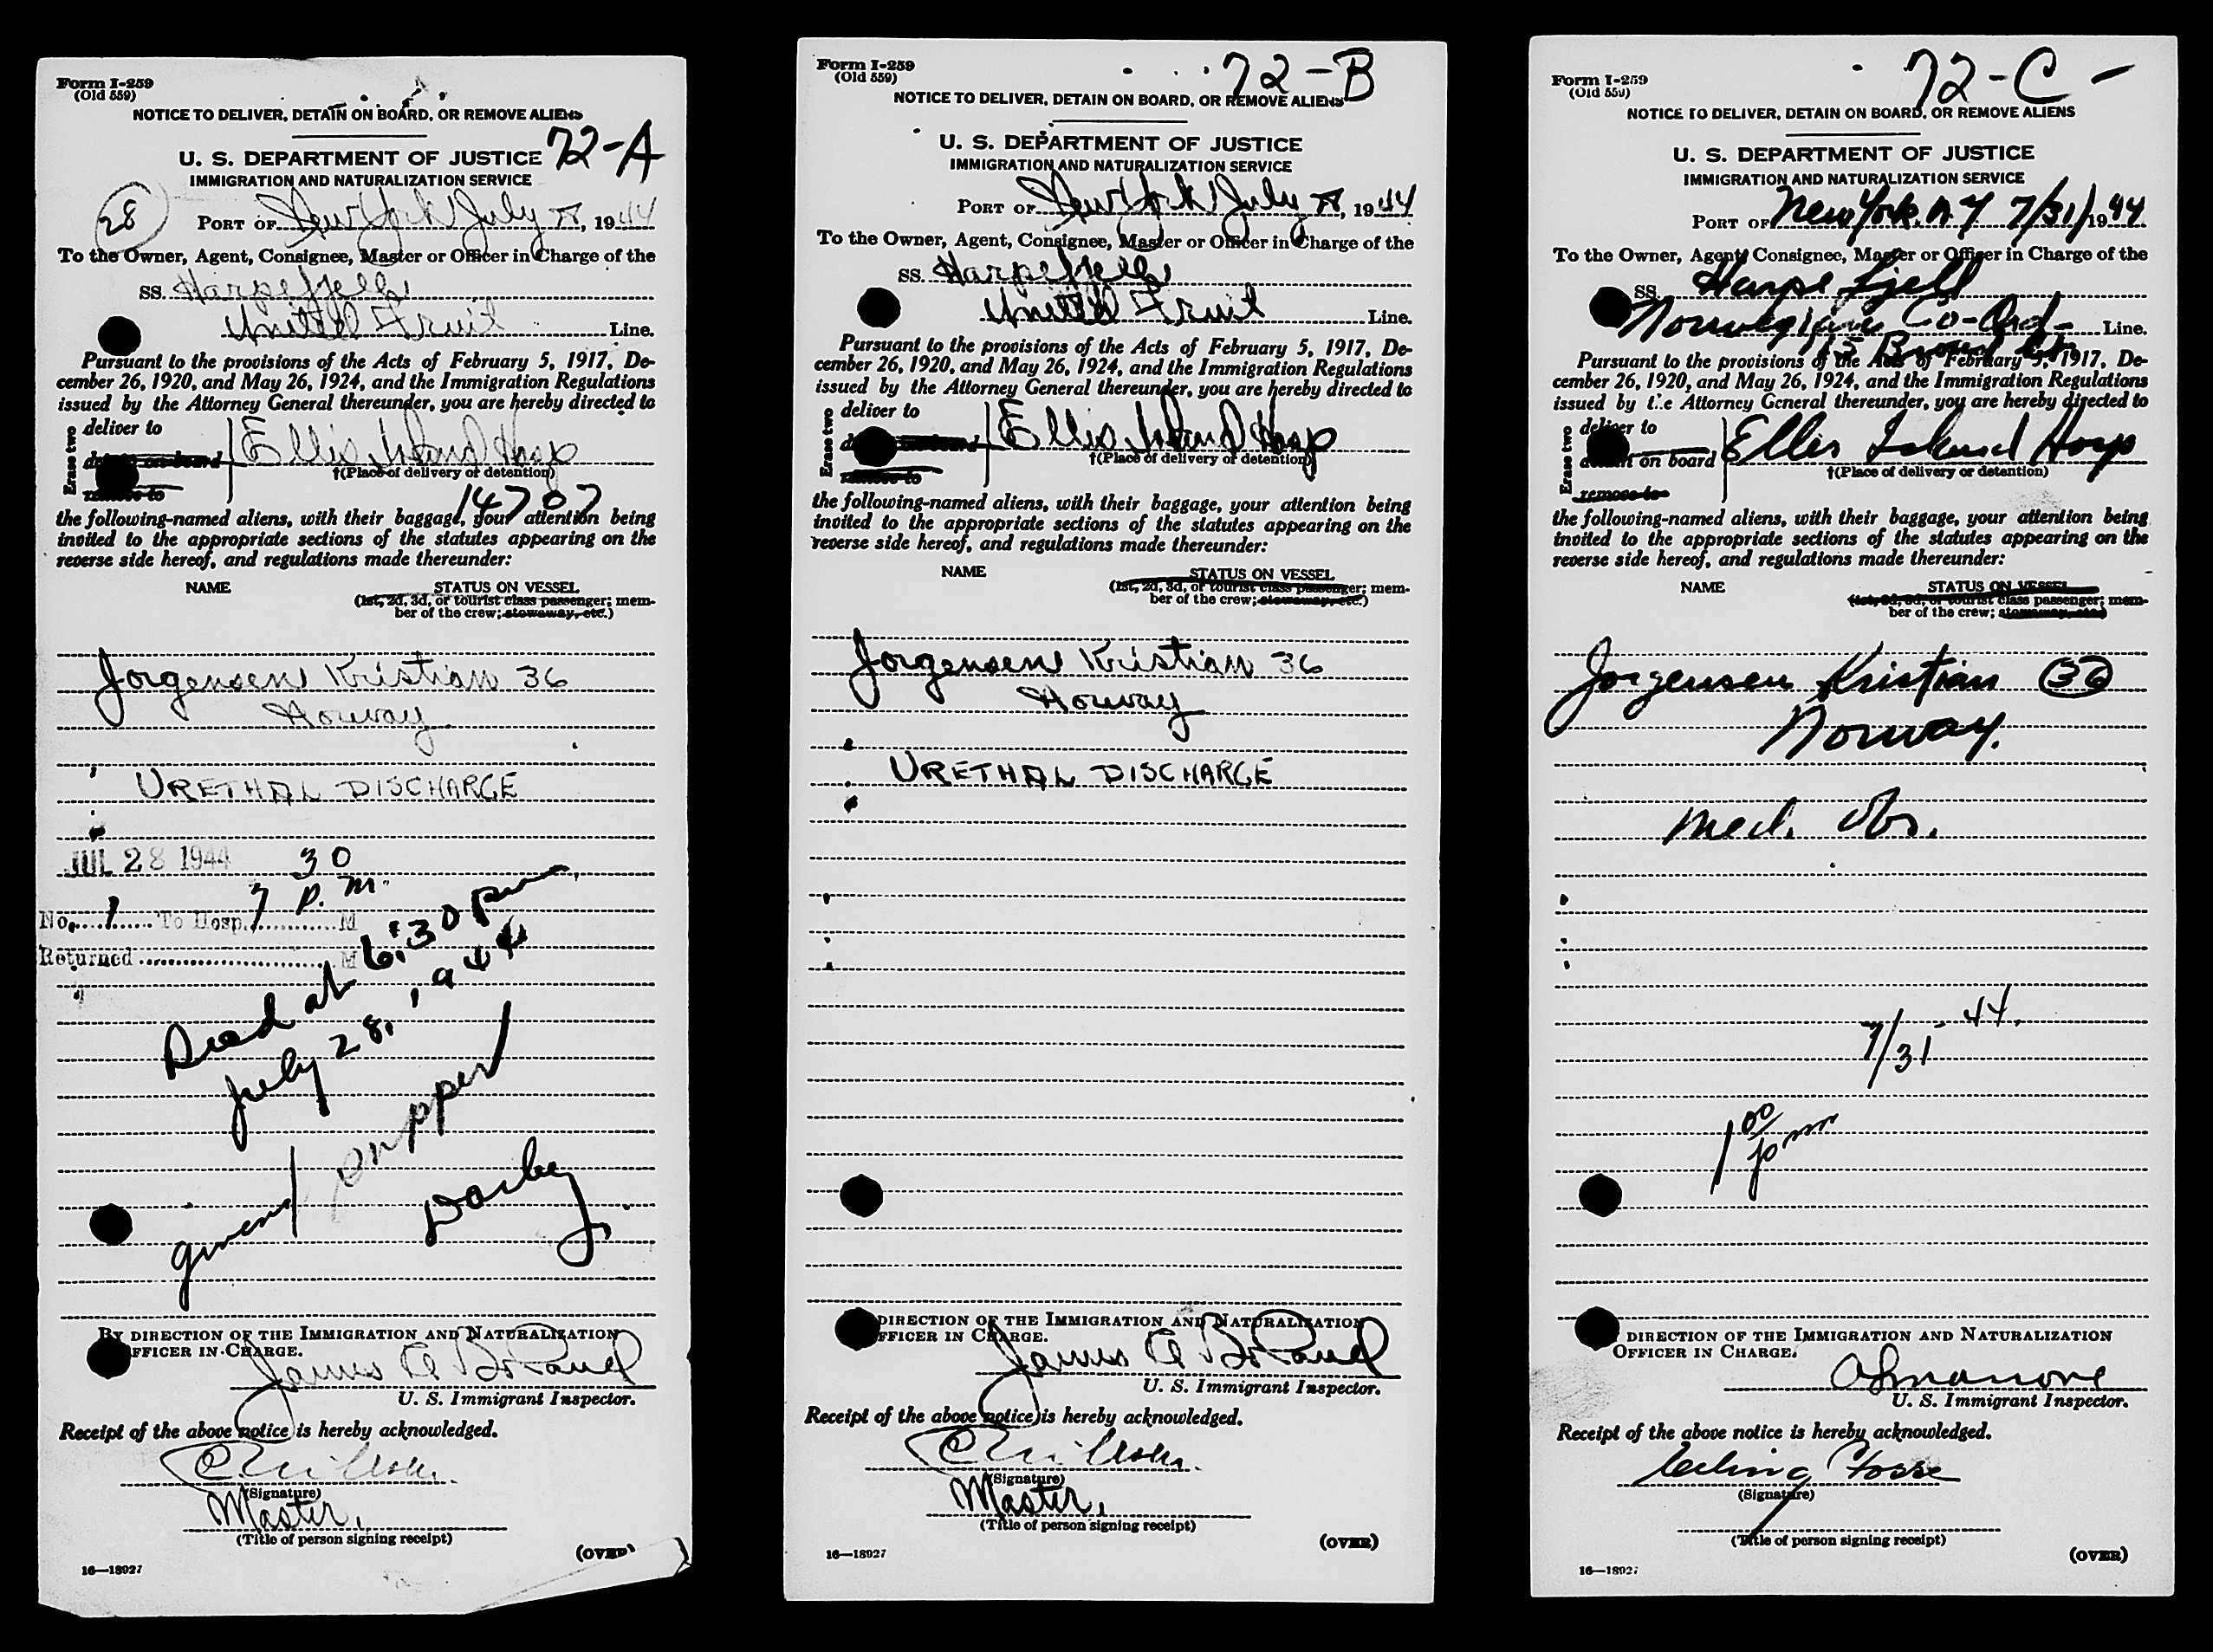 Form I-259
(Old 559)
NOTICE TO DELIVER, DETAIN ON BOARD, OR REMOVE ALIENS
72-A
U. S. DEPARTMENT OF JUSTICE
IMMIGRATION AND NATURALIZATION SERVICE
28
PORT OF New York July 28, 1944
To the Owner, Agent, Consignee, Master or Officer in Charge of the
SS. Harpefjell
United Fruit Line.
Pursuant to the provisions of the Acts of February 5, 1917, De-
cember 26, 1920, and May 26, 1924, and the Immigration Regulations
issued by the Attorney General thereunder, you are hereby directed to
Erase two
deliver to
on board
Ellis Island Hosp
†(Place of delivery or detention)
remove to
14707
the following-named aliens, with their baggage, your attention being
invited to the appropriate sections of the statutes appearing on the
reverse side hereof, and regulations made thereunder:
NAME STATUS ON VESSEL
(1st, 2d, 3d, or tourist class passenger; mem-
ber of the crew; stowaway, etc.)
Jorgensen Kristian 36
Norway
URETHAL DISCHARGE
JUL 28 1944
No. 1 To Hosp. 7 30 P.M. M
Returned M
at 6:30 pm
July 28, 1944
Darby
BY DIRECTION OF THE IMMIGRATION AND NATURALIZATION
FFICER IN CHARGE.
James A Boland
U. S. Immigrant Inspector.
Receipt of the above notice is hereby acknowledged.
(Signature)
Master.
(Title of person signing receipt)
(OVER)
16—18927
Form I-259
(Old 559)
72-B
NOTICE TO DELIVER, DETAIN ON BOARD, OR REMOVE ALIENS
U. S. DEPARTMENT OF JUSTICE
IMMIGRATION AND NATURALIZATION SERVICE
PORT OF New York July 28, 1944
To the Owner, Agent, Consignee, Master or Officer in Charge of the
SS. Harpefjell
United Fruit Line.
Pursuant to the provisions of the Acts of February 5, 1917, De-
cember 26, 1920, and May 26, 1924, and the Immigration Regulations
issued by the Attorney General thereunder, you are hereby directed to
Erase two
deliver to
Ellis Island Hosp
†(Place of delivery or detention)
remove to
the following-named aliens, with their baggage, your attention being
invited to the appropriate sections of the statutes appearing on the
reverse side hereof, and regulations made thereunder:
NAME STATUS ON VESSEL
(1st, 2d, 3d, or tourist class passenger; mem-
ber of the crew; stowaway, etc.)
Jorgensen Kristian 36
Norway
URETHAL DISCHARGE
DIRECTION OF THE IMMIGRATION AND NATURALIZATION
FFICER IN CHARGE.
James A Boland
U. S. Immigrant Inspector.
Receipt of the above notice is hereby acknowledged.
(Signature)
Master.
(Title of person signing receipt)
(OVER)
16—18927
Form I-259
(Old 559)
72-C -
NOTICE TO DELIVER, DETAIN ON BOARD, OR REMOVE ALIENS
U. S. DEPARTMENT OF JUSTICE
IMMIGRATION AND NATURALIZATION SERVICE
PORT OF New York, N Y 7/31/1944
To the Owner, Agent, Consignee, Master or Officer in Charge of the
SS Harpe Fjell
Norwegian Co-Ord- Line.
15 Broad St.
Pursuant to the provisions of the Acts of February 5, 1917, De-
cember 26, 1920, and May 26, 1924, and the Immigration Regulations
issued by the Attorney General thereunder, you are hereby directed to
Erase two
deliver to
on board
Ellis Island Hosp
†(Place of delivery or detention)
remove to
the following-named aliens, with their baggage, your attention being
invited to the appropriate sections of the statutes appearing on the
reverse side hereof, and regulations made thereunder:
NAME STATUS ON VESSEL
(1st, 2d, 3d, or tourist class passenger; mem-
ber of the crew; stowaway, etc.)
Jorgensen Kristian 36
Norway.
Med. Obs.
7/31-44.
1 00 pm
DIRECTION OF THE IMMIGRATION AND NATURALIZATION
OFFICER IN CHARGE.
U. S. Immigrant Inspector.
Receipt of the above notice is hereby acknowledged.
Erling Fosse
(Signature)
(Title of person signing receipt)
(OVER)
16—18927